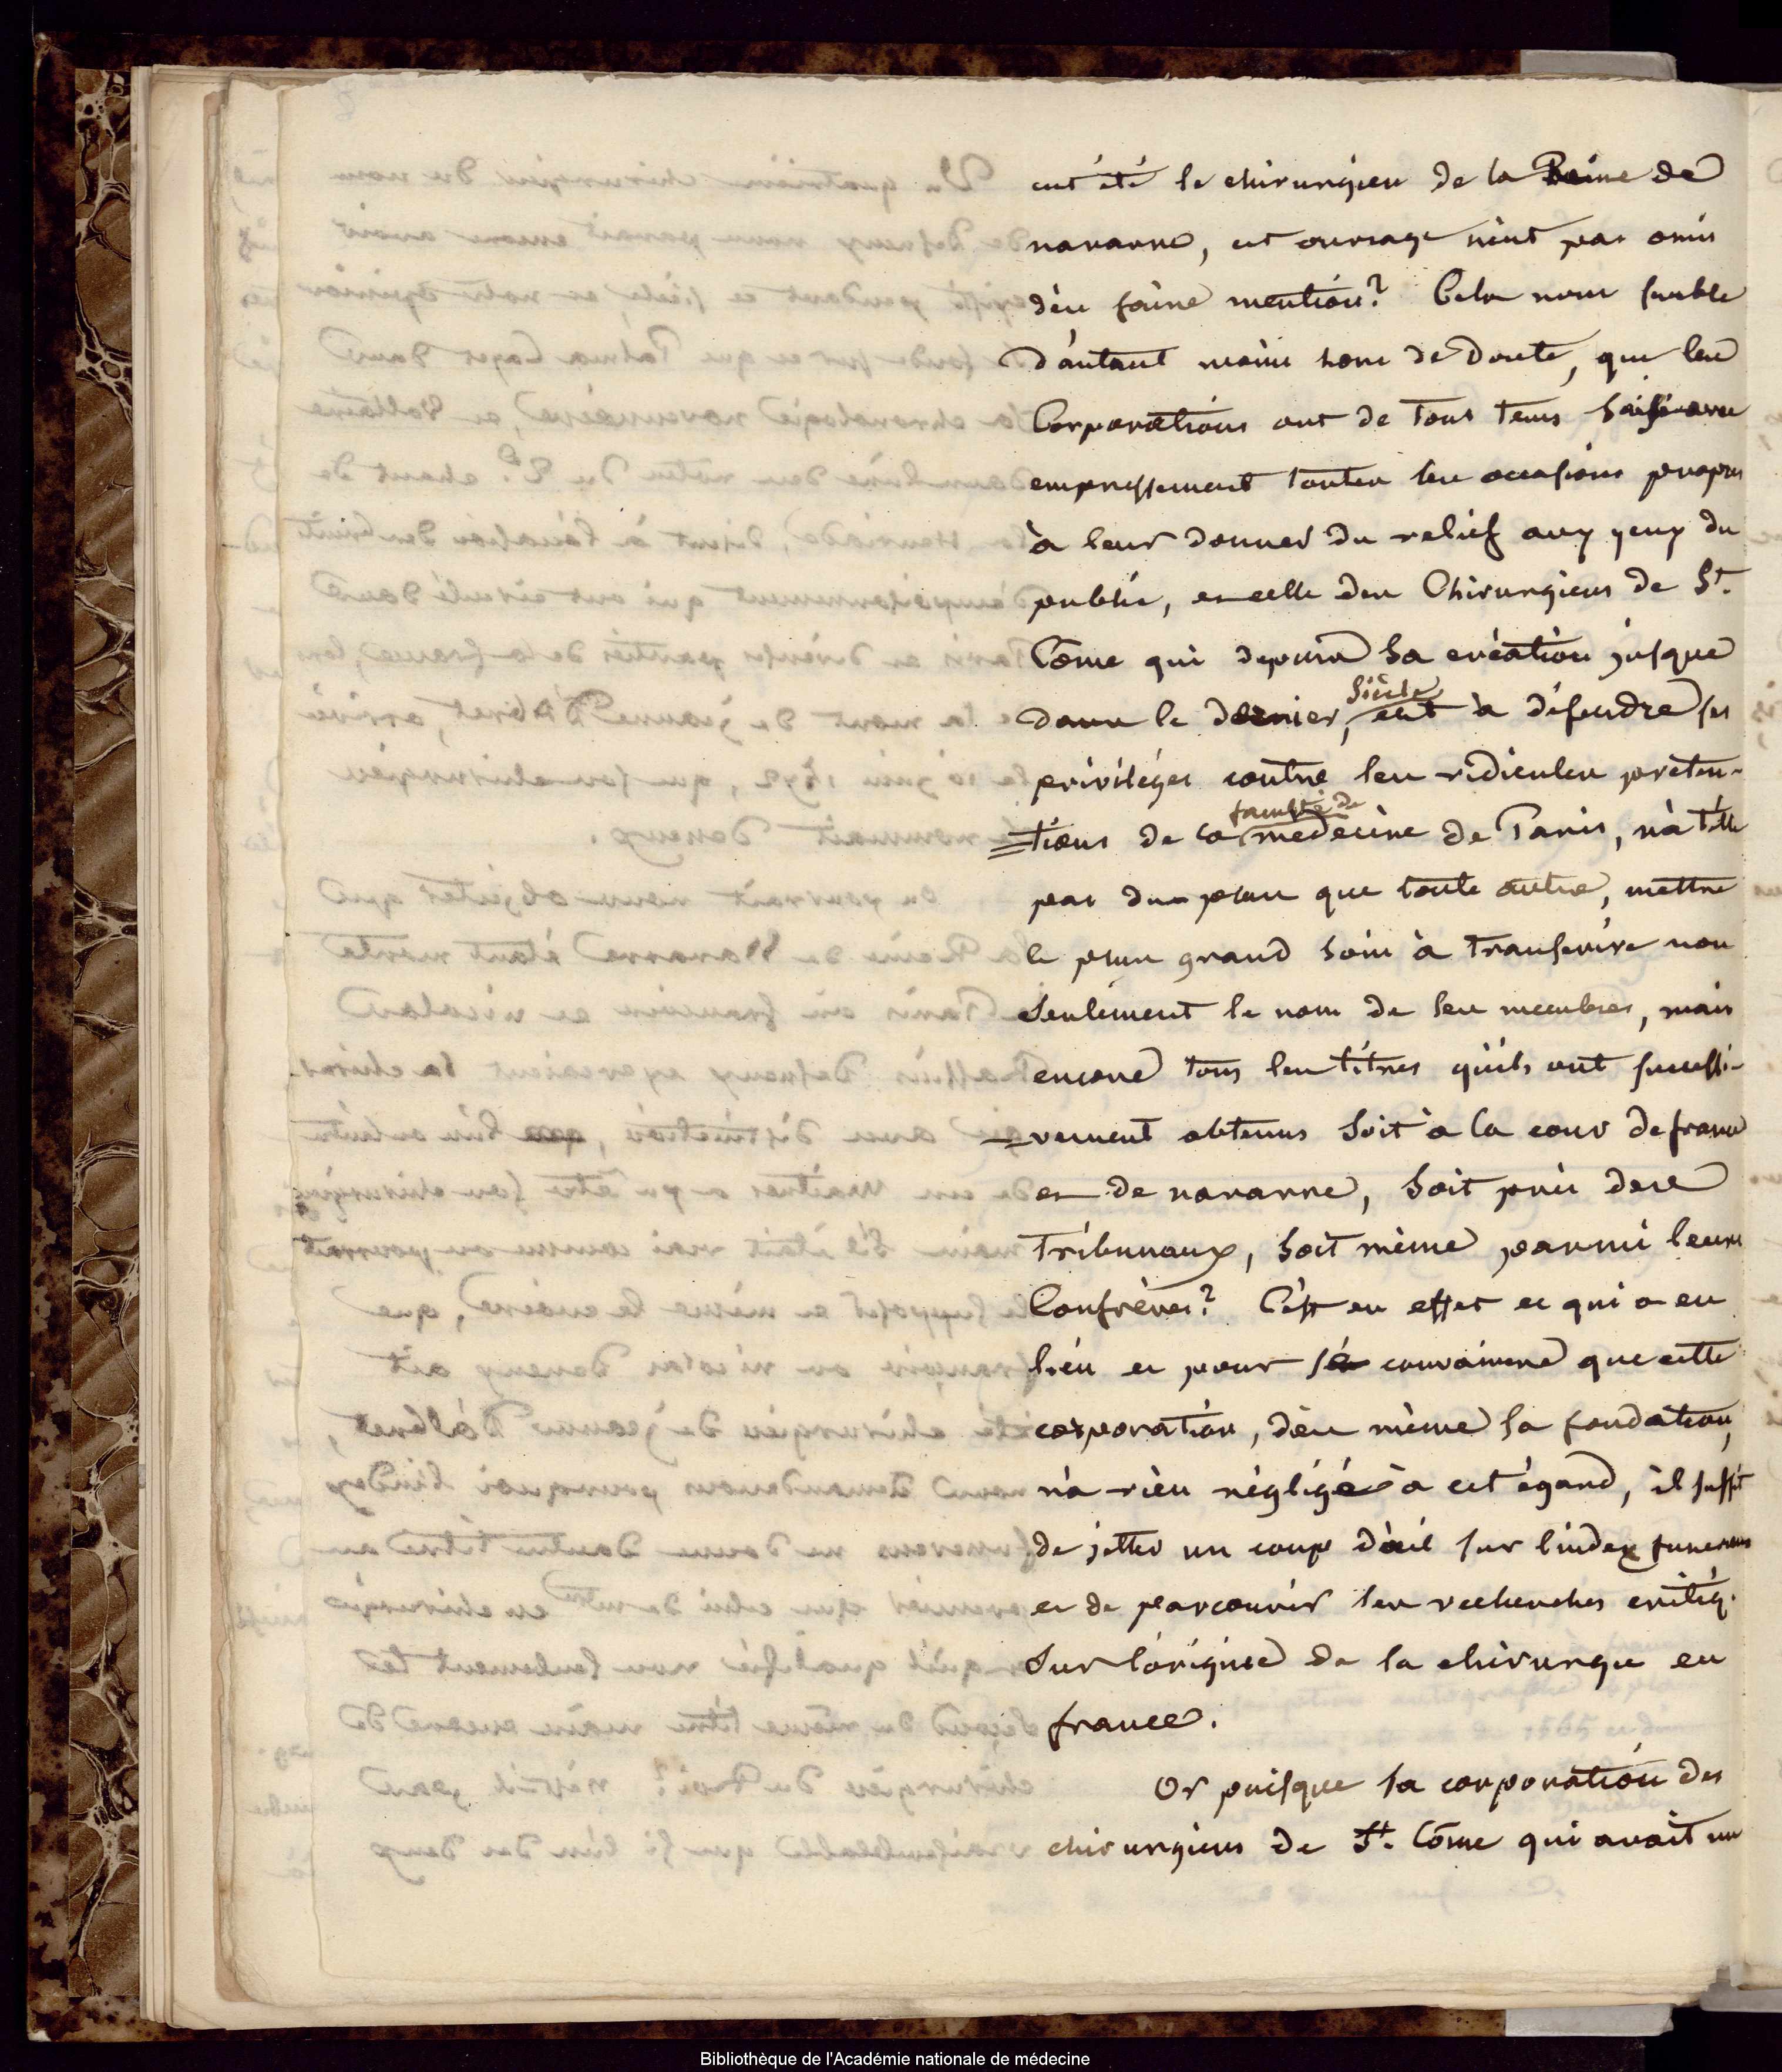 eut été le chirurgien de la Reine de
navarre, cet ouvrage n'eut pas omis
d'en faire mention? Cela nous semble
d'autant moins hors de Doute, que les
Corporations ont de tous tems saisi avec
empressement toutes les occasions propres
à leur donner du relief aux yeux du
public, et celle des Chirurgiens de St.
Côme qui depuis sa création jusque
siècle
dans le dernier, eut à défendre ses
privilèges contre les ridicules préten-
faculté de
=tions de la médecine de Paris, n'a t'elle
pas du plus que toute autre, mettre
le plus grand soin à transcrire non
seulement le nom de ses membres, mais
encore tous les titres qu'ils ont successi-
-vement obtenus soit à la cour de france
et de navarre, soit près des
Tribunaux, soit même parmi leurs
Confrères? C'est en effet ce qui a eu
lieu et pour se convaincre que cette
corporation, dès même sa fondation,
n'a rien négligé à cet égard, il suffit
de jetter un coup d'œil sur l'index funereus
et de parcourir les recherches critiq.
sur l'origine de la chirurgie en
france.
Or puisque la corporation des
chirurgiens de St. Côme qui avait un
Bibliothèque de l'Académie nationale de médecine